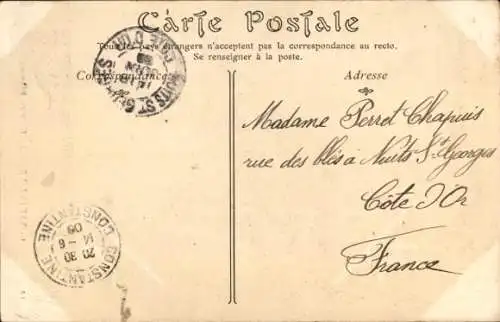 Carte Postale
Tous les pays étrangers n'acceptent pas la correspondance au recto.
Se renseigner à la poste.
Correspondance
Adresse
Madame Perret Chapuis
rue des blés à Nuits St Georges
Côte d'Or
France
CONSTANTINE
20 30
14 - 6
09
CONSTANTINE